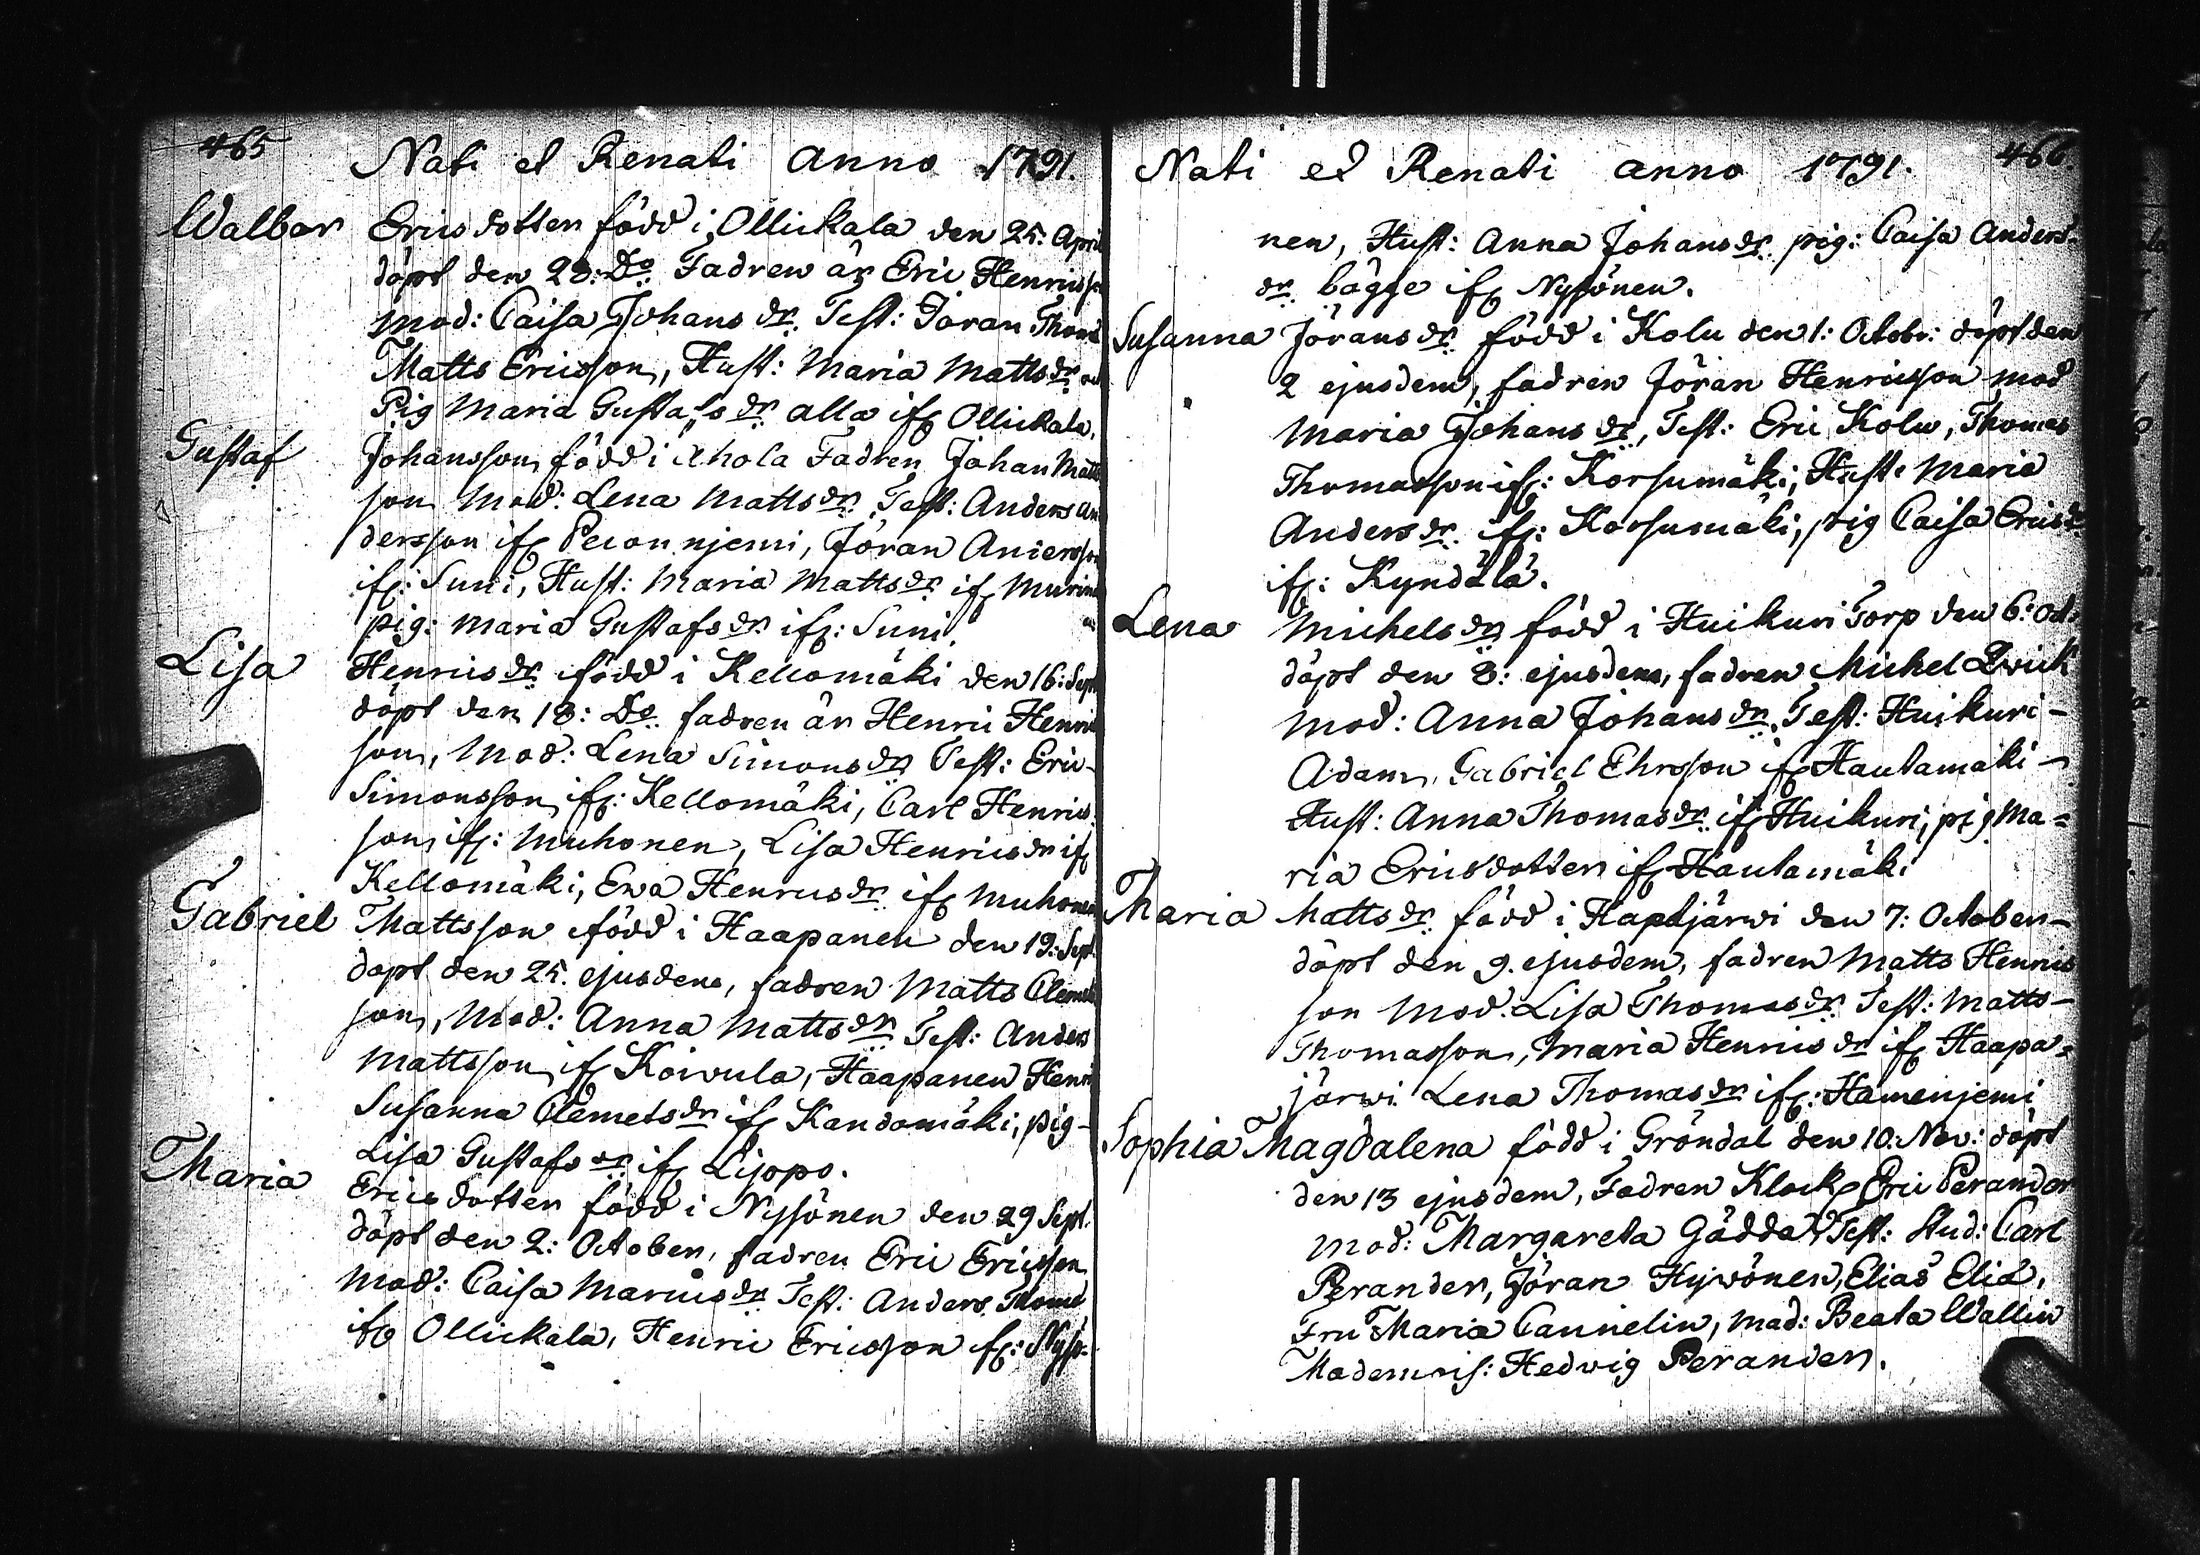 465
Nati et Renati anno 1791.
Walbor Ericsdotter född i Ollickala den 25: April
döpt den 28: Do Fadren är Eric Henricsson
Mod: Caisa Johans dr. Test: Jöran Thom
Matts Ericsson, Hust: Maria Matts dr
Pig Maria Gustafs dr alla ifr Ollickala.
Gustaf Johansson född i Ahola Fadren Johan Matts
son Mod: Lena Matts dr Test: Anders An
dersson ifr Peconnjemi, Jöran Andersson
ifr: Suni, Hust: Maria Matts dr ifr Murine
pig: Maria Gustafs dr ifr: Suni.
Lisa Henrics dr född i Kellomäki den 16: Sept
döpt den 18: Do. fadren är Henric Henric
son, Mod: Lena Simons dr Test: Eric
Simonsson ifr: Kellomäki, Carl Henrics
son ifr: Muhonen, Lisa Henrics dr ifr
Kellomäki, Ewa Henrics dr ifr Muhonen
Gabriel Mattsson född i Haapanen den 19: Sept.
döpt den 25. ejusdem, fadren Matts Clemets
son, Mod: Anna Matts dr Test: Anders
Mattsson ifr Koivula, Haapanen Henric
Susanna Clemets dr ifr Kandomäki, pig
Lisa Gustafs dr ifr Lijopo.
Maria Ericsdotter född i Nysönen den 29 Sept.
döpt den 2: October, fadren Eric Ericsson
Mod: Caisa Marcus dr Test: Anders Thome
ifr Ollickala, Henric Ericsson ifr: Nysö-
466.
Nati et Renati anno 1791.
nen, Hust: Anna Johans dr. pig: Caisa Anders
dr. bägge ifr Nysönen.
Susanna Jörans dr född i Kolu den 1: Octobr: döpt den
2 ejusdem, fadren Jöran Henricsson mod
Maria Johans dr, Test: Eric Kolu, Thomas
Thomasson ifr: Korsumäki, Hust: Maria
Anders dr. ifr: Korsumäki, pig Caisa Erics dr
ifr: Kyndälä.
Lena Michels dr född i Huikuri Torp den 6: Oct:
döpt den 8: ejusdem, fadren Michel Qvick
Mod: Anna Johans dr. Test: Huikuri-
Adam, Gabriel Ehrsson ifr Hautamäki
Hust: Anna Thomas dr. ifr Huikuri, pig Ma=
ria Ericsdotter ifr Hautamäki
Maria Matts dr född i Hapajärwi den 7: October
döpt den 9. ejusdem, fadren Matts Henrics
son Mod. Lisa Thomas dr Test: Matts
Thomasson, Maria Henrics dr ifr Haapa=
järwi Lena Thomas dr ifr: Hamenjemi
Sophia Magdalena född i Gröndal den 10: Nov: döpt
den 13 ejusdem, Fadren Klock Eric Perander
Mod: Margareta Gädda Test: Stud: Carl
Perander, Jöran Hywönen, Elias Elia,
Fru Maria Cannelin, Mad: Beata Wallin
Mademois: Hedvig Perander.